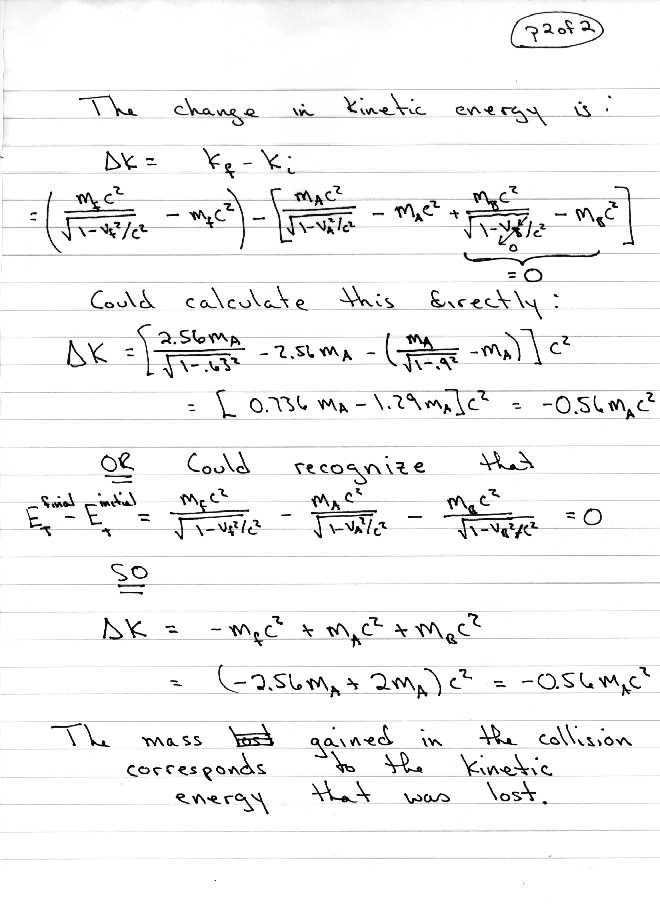 p2of2
The change in kinetic energy is:
ΔK = K_f - K_i
= (m_f c²/√(1-v_f²/c²) - m_f c²) - [m_A c²/√(1-v_A²/c²) - m_A c² + m_B c²/√(1-v_B²/c²) - m_B c²]
0
= 0
Could calculate this directly:
ΔK = [2.56m_A/√(1-.63²) - 2.56 m_A - (m_A/√(1-.9²) - m_A)] c²
= [0.736 m_A - 1.29 m_A]c² = -0.56m_A c²
OR Could recognize that
E_T^final - E_T^initial = m_f c²/√(1-v_f²/c²) - m_A c²/√(1-v_A²/c²) - m_B c²/√(1-v_B²/c²) = 0
SO
ΔK = -m_f c² + m_A c² + m_B c²
= (-2.56m_A + 2m_A) c² = -0.56 m_A c²
The mass lost gained in the collision
corresponds to the kinetic
energy that was lost.